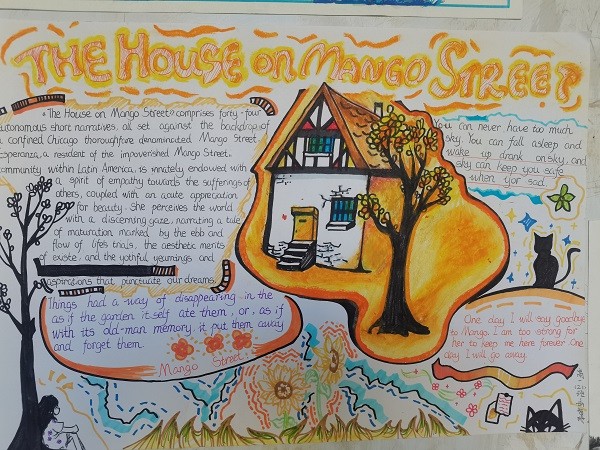 THE HOUSE on MANGO STREET
《The House on Mango Street》 comprises forty-four
autonomous short narratives, all set against the backdrop of
a confined Chicago thoroughfare denominated Mango Street.
Esperanza, a resident of the impoverished Mango Street
community within Latin America, is innately endowed with
a spirit of empathy towards the sufferings of
others, coupled with an acute appreciation
for beauty. She perceives the world
with a discerning gaze, narrating a tale
of maturation marked by the ebb and
flow of life's trials, the aesthetic merits
of existe, and the yothful yearnings and
aspirations that punctuate our dreams.
Things had a way of disappearing in the
as if the garden itself ate them, or, as if
with its old-man memory, it put them away
and forget them.
Mango Street
You can never have too much
sky. You can fall asleep and
wake up drank on sky, and
sky can keep you safe
when yor sad.
One day I will say goodbye
to Mango. I am too strong for
her to keep me here forever. One
day I will go away.